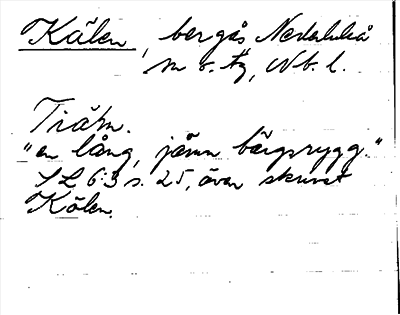 Kälen, bergås Nederluleå
sn o. tg, Nb. l.
Trähn.
"en lång, jämn bärgsrygg."
SL 6:3 s. 25, även skrivet
Kölen.